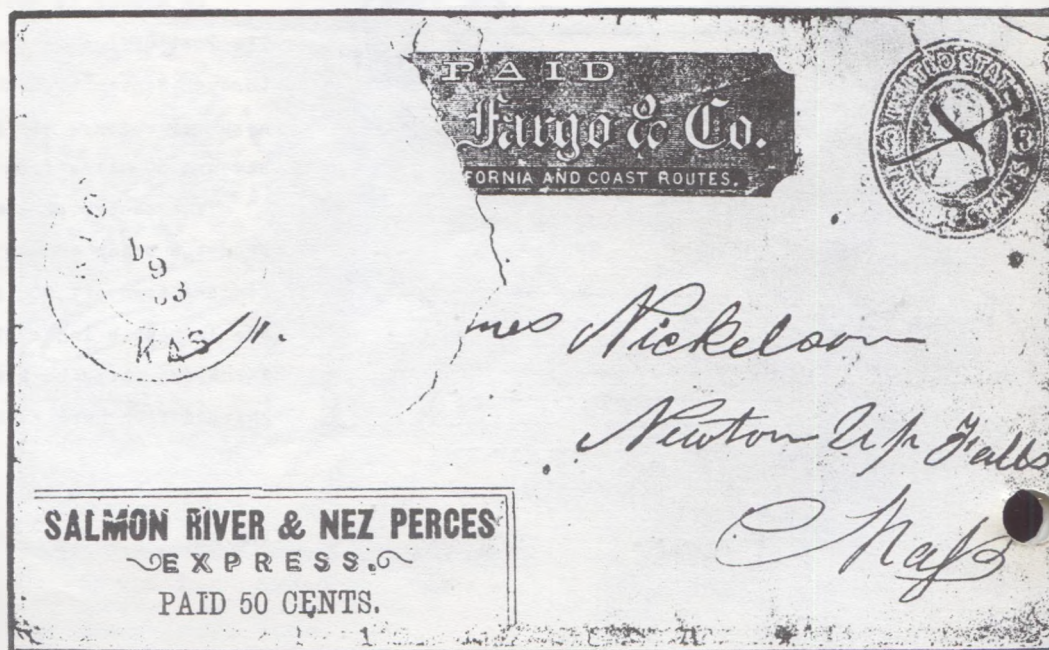 PAID
Fargo & Co.
FORNIA AND COAST ROUTES.
UNITED STATES
3 3
THREE CENTS
9
KAS
mes Nickelson
Newton Up Falls
Mass
SALMON RIVER & NEZ PERCES
EXPRESS.
PAID 50 CENTS.